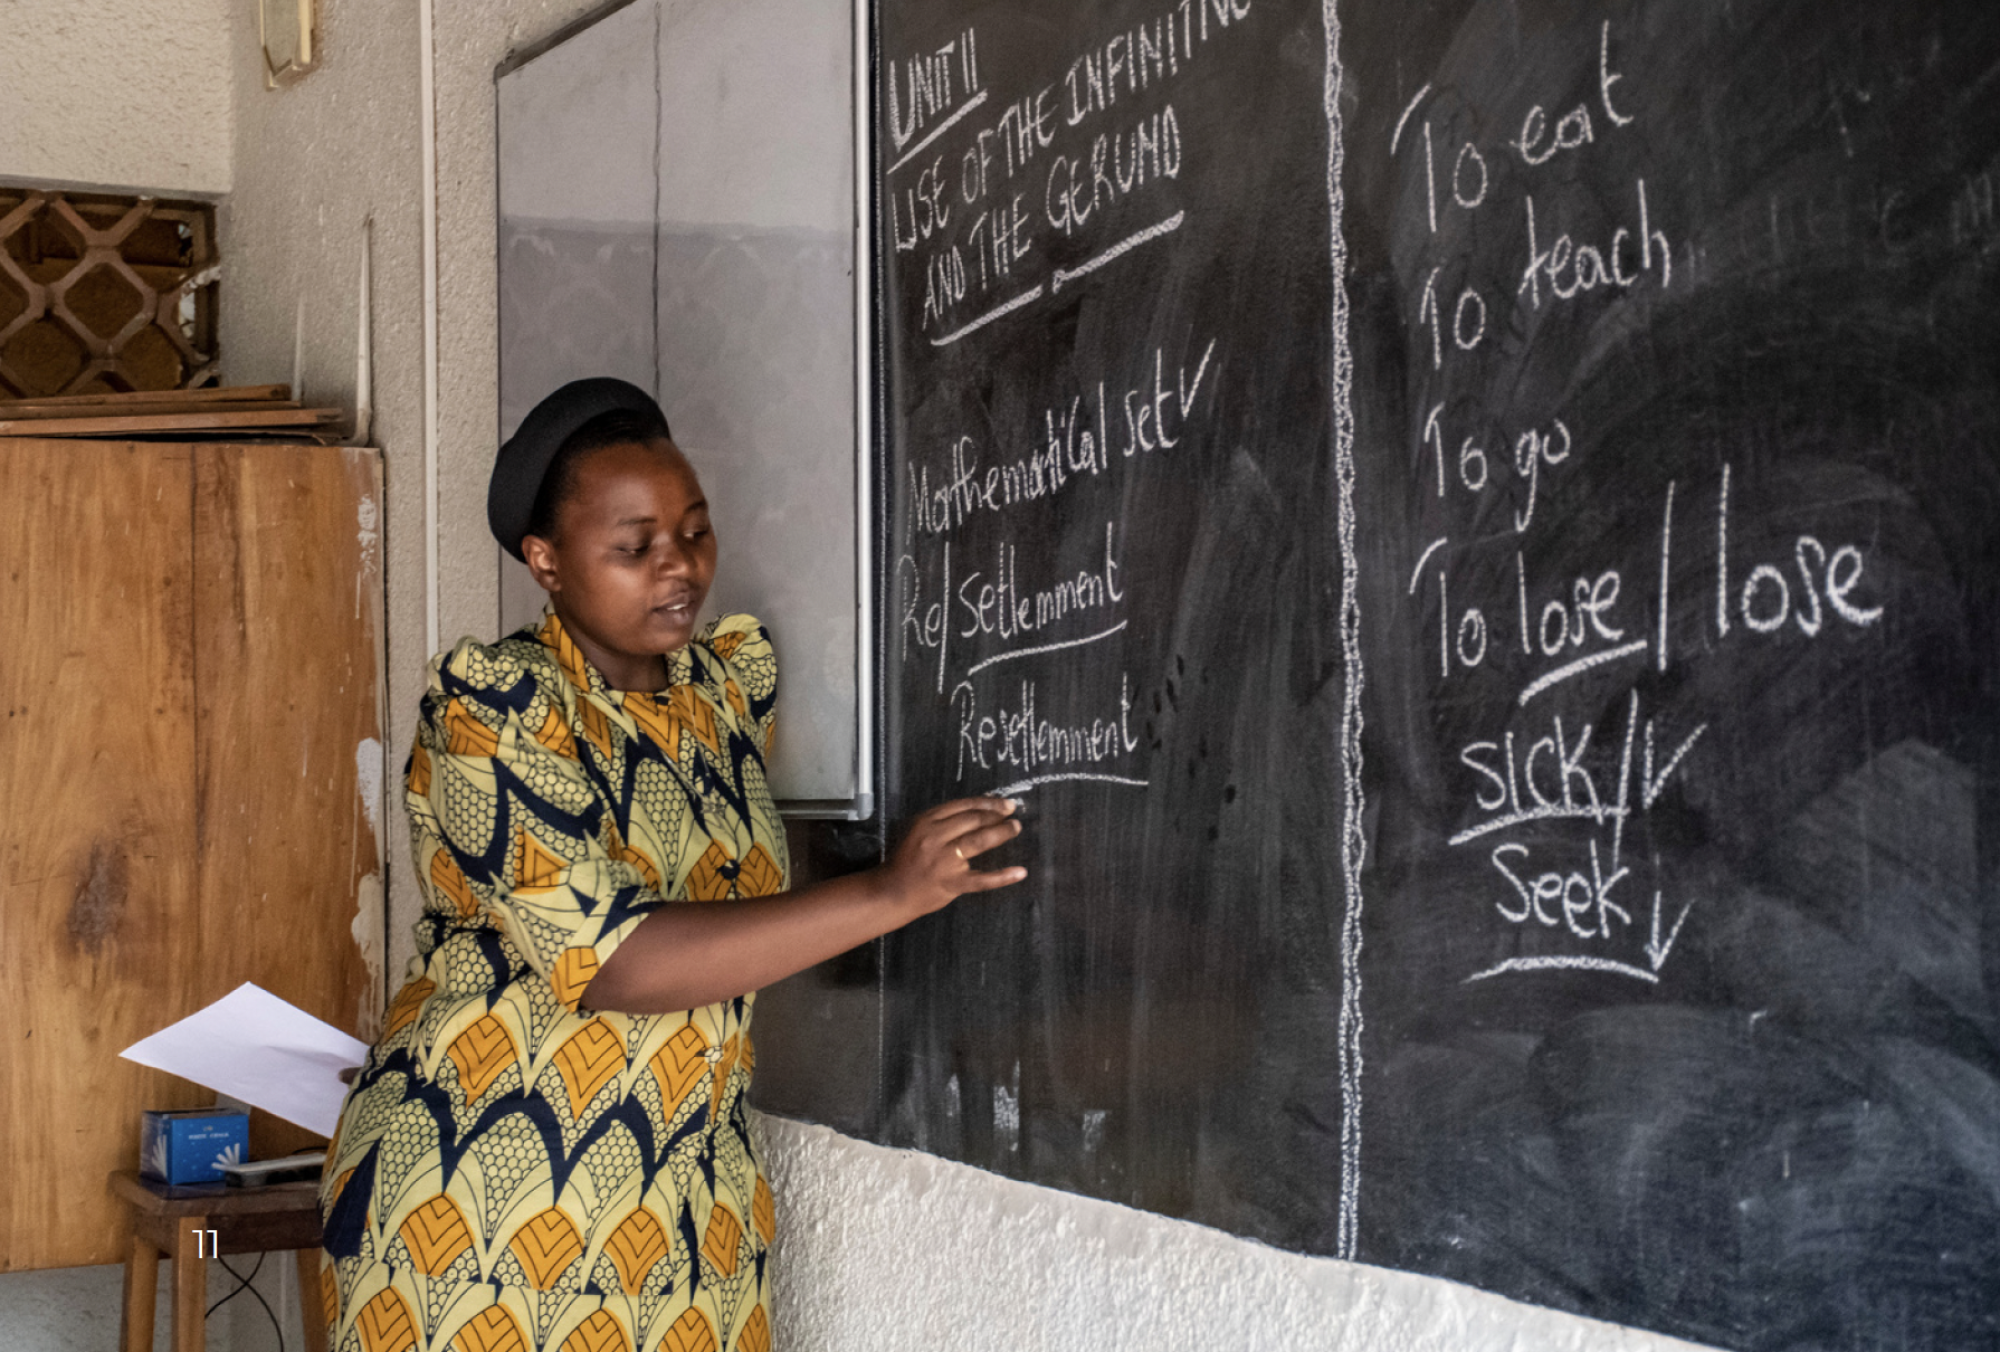 UNIT II
USE OF THE INFINITIVE
AND THE GERUND
Mathematical set
Re/ setlemment
Resetlemment
To eat
To teach
To go
To lose / lose
SICK /
Seek
11